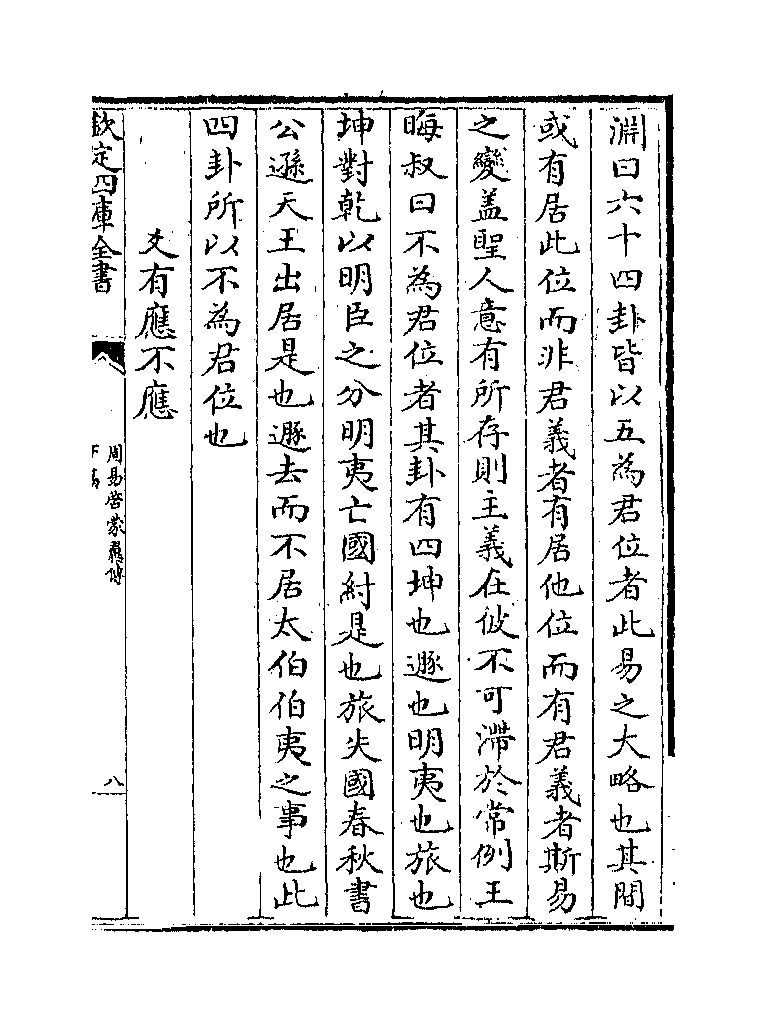 淵曰六十四卦皆以五為君位者此易之大略也其間
或有居此位而非君義者有居他位而有君義者斯易
之變盖聖人意有所存則主義在彼不可滯於常例王
晦叔曰不為君位者其卦有四坤也遯也明夷也旅也
坤對乾以明臣之分明夷亡國紂是也旅失國春秋書
公遜天王出居是也遯去而不居太伯伯夷之事也此
四卦所以不為君位也
爻有應不應
欽定四庫全書
周易啓蒙翼傳
下篇
八